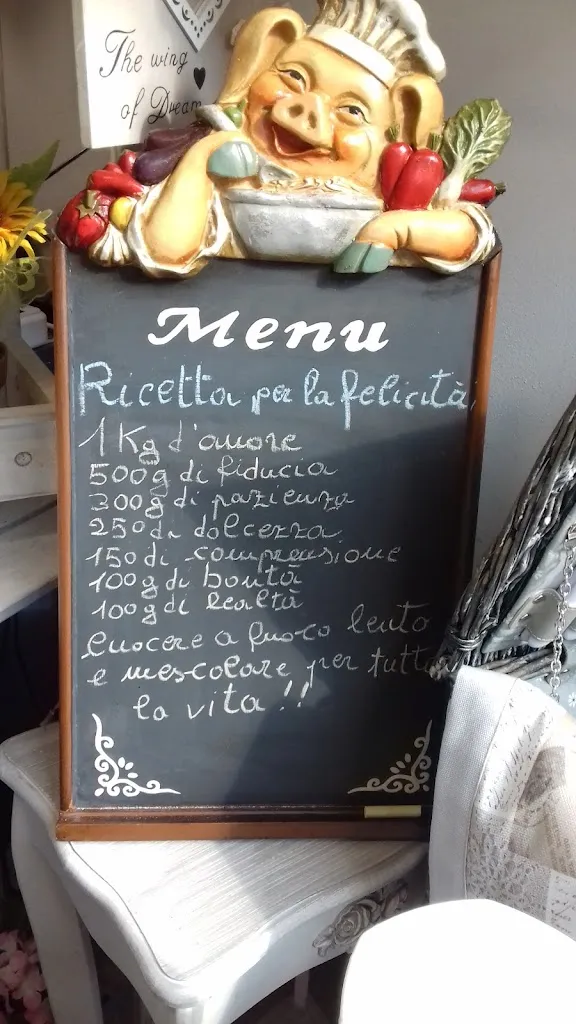 The wing
of Dream
Menu
Ricetta per la felicità
1 Kg d'amore
500g di fiducia
300g di pazienza
250 di dolcezza
150 di comprensione
100g di bontà
100g di lealtà
Cuocere a fuoco lento
e mescolare per tutta
la vita!!